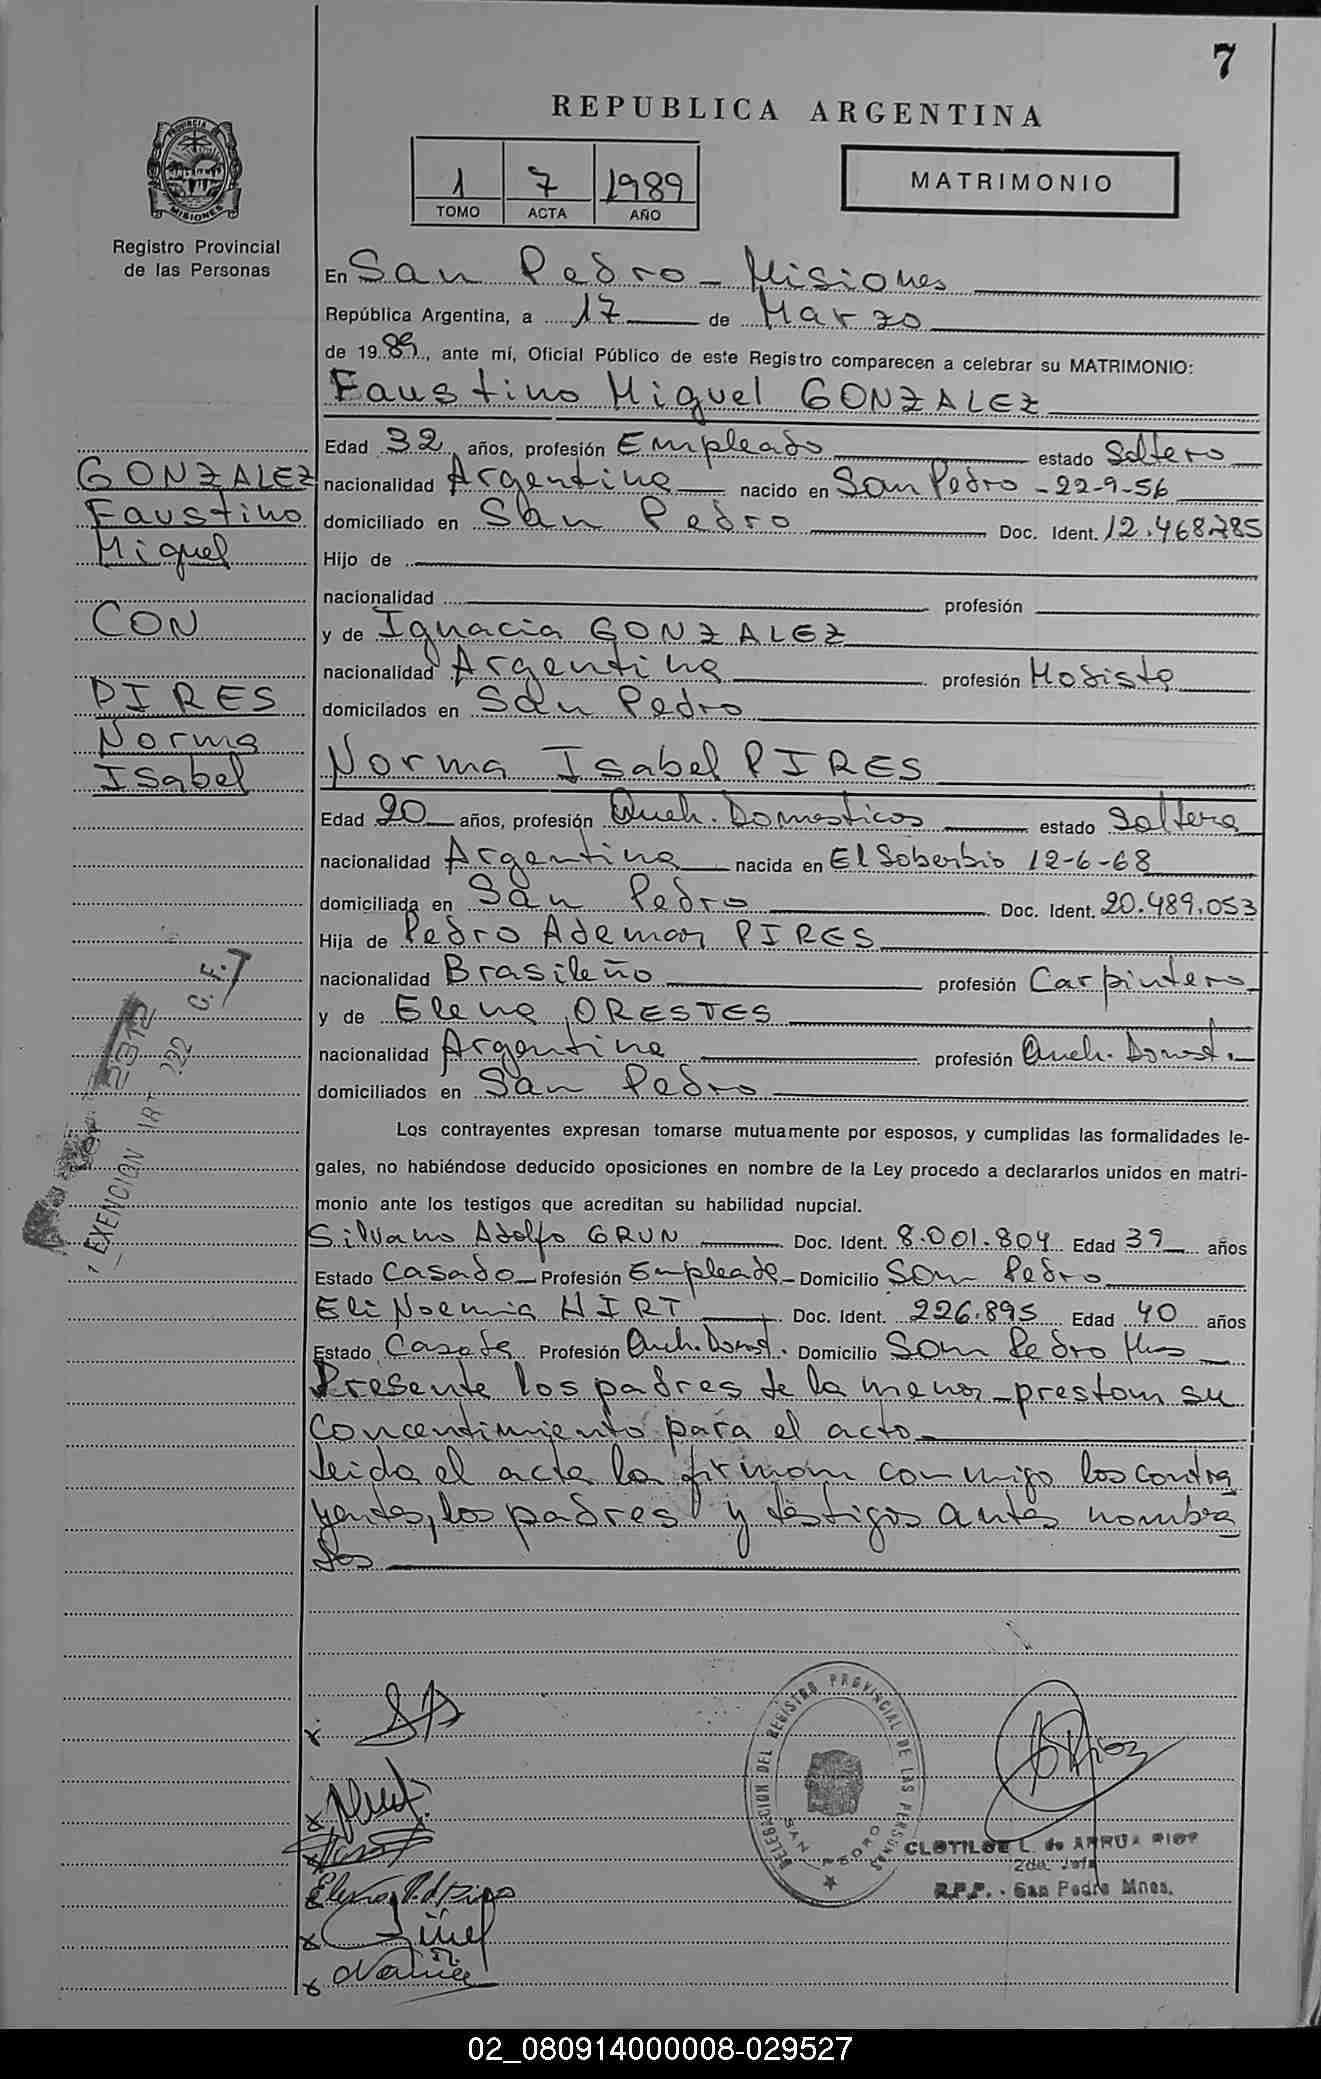 7
REPUBLICA ARGENTINA
PROVINCIA
MISIONES
Registro Provincial
de las Personas
1 7 1989
TOMO ACTA AÑO
MATRIMONIO
En San Pedro - Misiones
República Argentina, a 17 de Marzo
de 1989, ante mí, Oficial Público de este Registro comparecen a celebrar su MATRIMONIO:
Faustino Miguel GONZALEZ
Edad 32 años, profesión Empleado estado Soltero
nacionalidad Argentina nacido en San Pedro - 22-9-56
domiciliado en San Pedro Doc. Ident. 12.468.785
Hijo de
nacionalidad profesión
y de Ignacia GONZALEZ
nacionalidad Argentina profesión Modista
domicilados en San Pedro
GONZALEZ
Faustino
Miguel
CON
PIRES
Norma
Isabel
Norma Isabel PIRES
Edad 20 años, profesión Queh. Domesticos estado Soltera
nacionalidad Argentina nacida en El Soberbio 12-6-68
domiciliada en San Pedro Doc. Ident. 20.489.053
Hija de Pedro Ademar PIRES
nacionalidad Brasileño profesión Carpintero
y de Elena ORESTES
nacionalidad Argentina profesión Queh. Domest.
domiciliados en San Pedro
EXENCION
Los contrayentes expresan tomarse mutuamente por esposos, y cumplidas las formalidades le-
gales, no habiéndose deducido oposiciones en nombre de la Ley procedo a declararlos unidos en matri-
monio ante los testigos que acreditan su habilidad nupcial.
Silvano Adolfo GRUN Doc. Ident. 8.001.804 Edad 39 años
Estado Casado Profesión Empleado Domicilio San Pedro
Eli Noemia HIRT Doc. Ident. 226.895 Edad 40 años
Estado Casada Profesión Queh. Domest. Domicilio San Pedro Mnes
Presente los padres de la menor prestam su
concentimiento para el acto
Leida el acta la firmam conmigo los contra
yentes, los padres y testigos antes nombra
dos
DELEGACION DEL REGISTRO PROVINCIAL DE LAS PERSONAS
SAN PEDRO
CLOTILDE L. de ARRUA RIOS
2da. Jefa
R.P.P. - San Pedro Mnes.
02_080914000008-029527